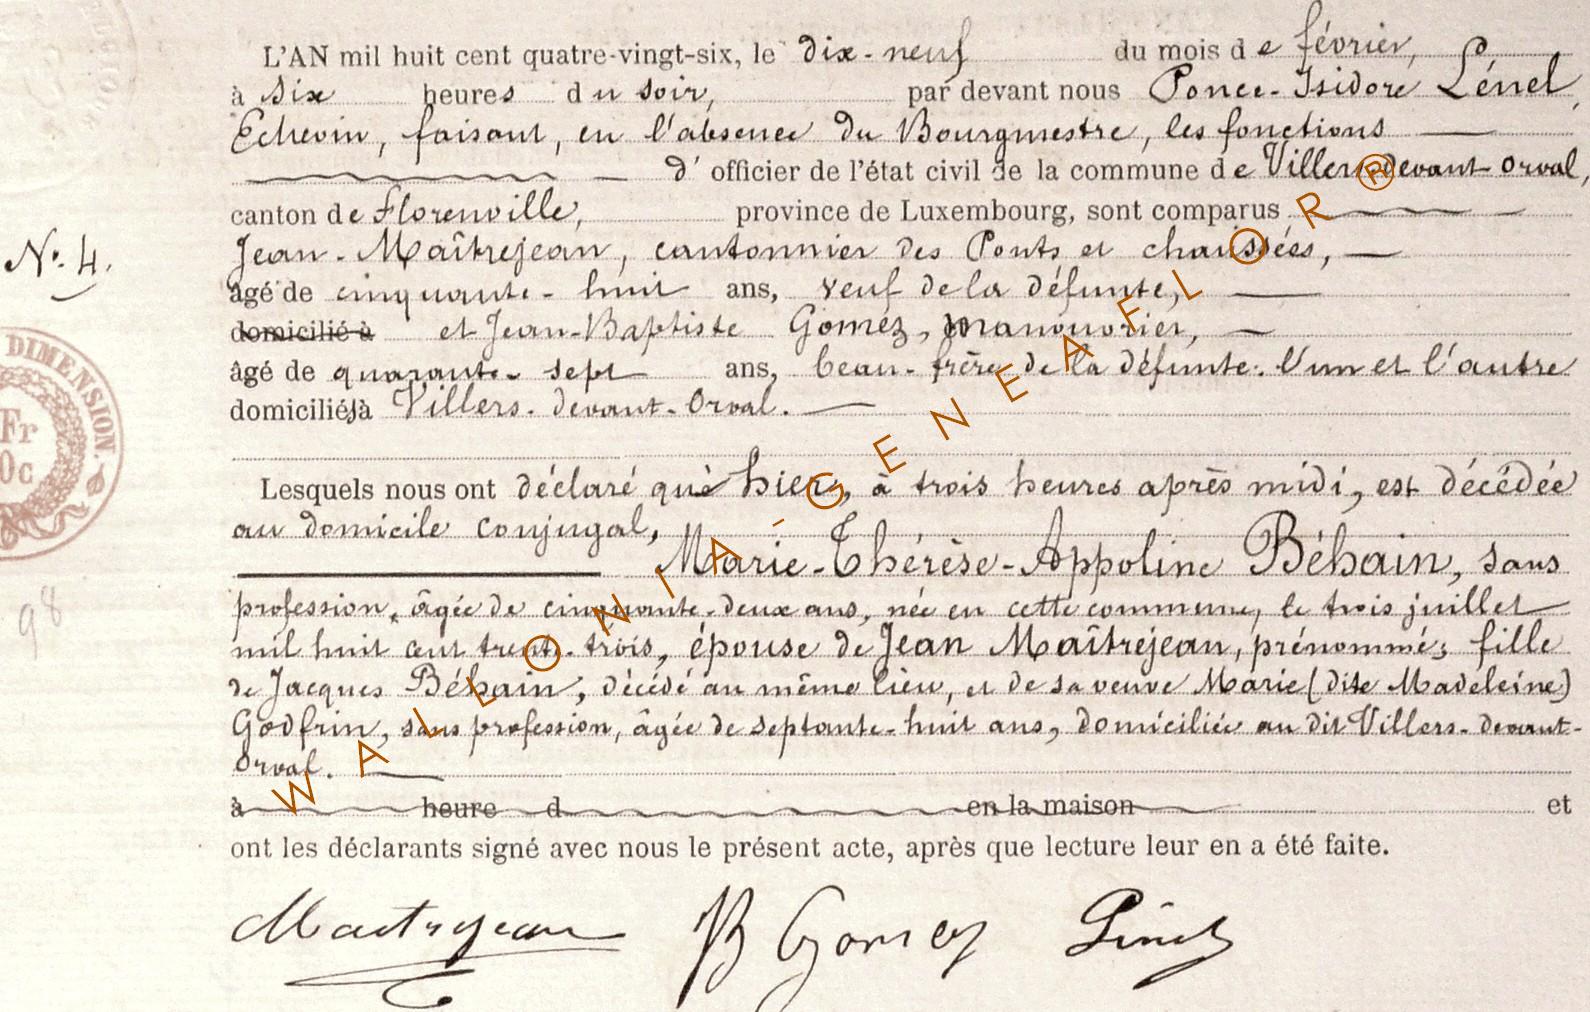 L'AN mil huit cent quatre-vingt-six, le dix-neuf du mois de février,
à six heures du soir, par devant nous Ponce-Isidore Lénel,
Echevin, faisant, en l'absence du Bourgmestre, les fonctions
d'officier de l'état civil de la commune de Villers-devant-Orval,
canton de Florenville, province de Luxembourg, sont comparus
N°. 4.
Jean-Maîtrejean, cantonnier des Ponts et chaussées,
âgé de cinquante-huit ans, veuf de la défunte,
domicilié à et Jean-Baptiste Goméz, manouvrier,
âgé de quarante-sept ans, beau-frère de la défunte. l'un et l'autre
domiciliés à Villers-devant-Orval.
DIMENSION.
Fr
0c
Lesquels nous ont déclaré que hier, à trois heures après midi, est décédée
au domicile conjugal,
Marie-Thérèse-Appoline Béhain, sans
profession, âgée de cinquante-deux ans, née en cette commune, le trois juillet
98
mil huit cent trente-trois, épouse de Jean Maîtrejean, prénommé; fille
de Jacques Béhain, décédé au même lieu, et de sa veuve Marie (dite Madeleine)
Godfrin, sans profession, âgée de septante-huit ans, domiciliée au dit Villers-devant-
Orval.
à heure d en la maison et
ont les déclarants signé avec nous le présent acte, après que lecture leur en a été faite.
Maitrejean JB Gomez
WALLONIA-GENEAFLOR®